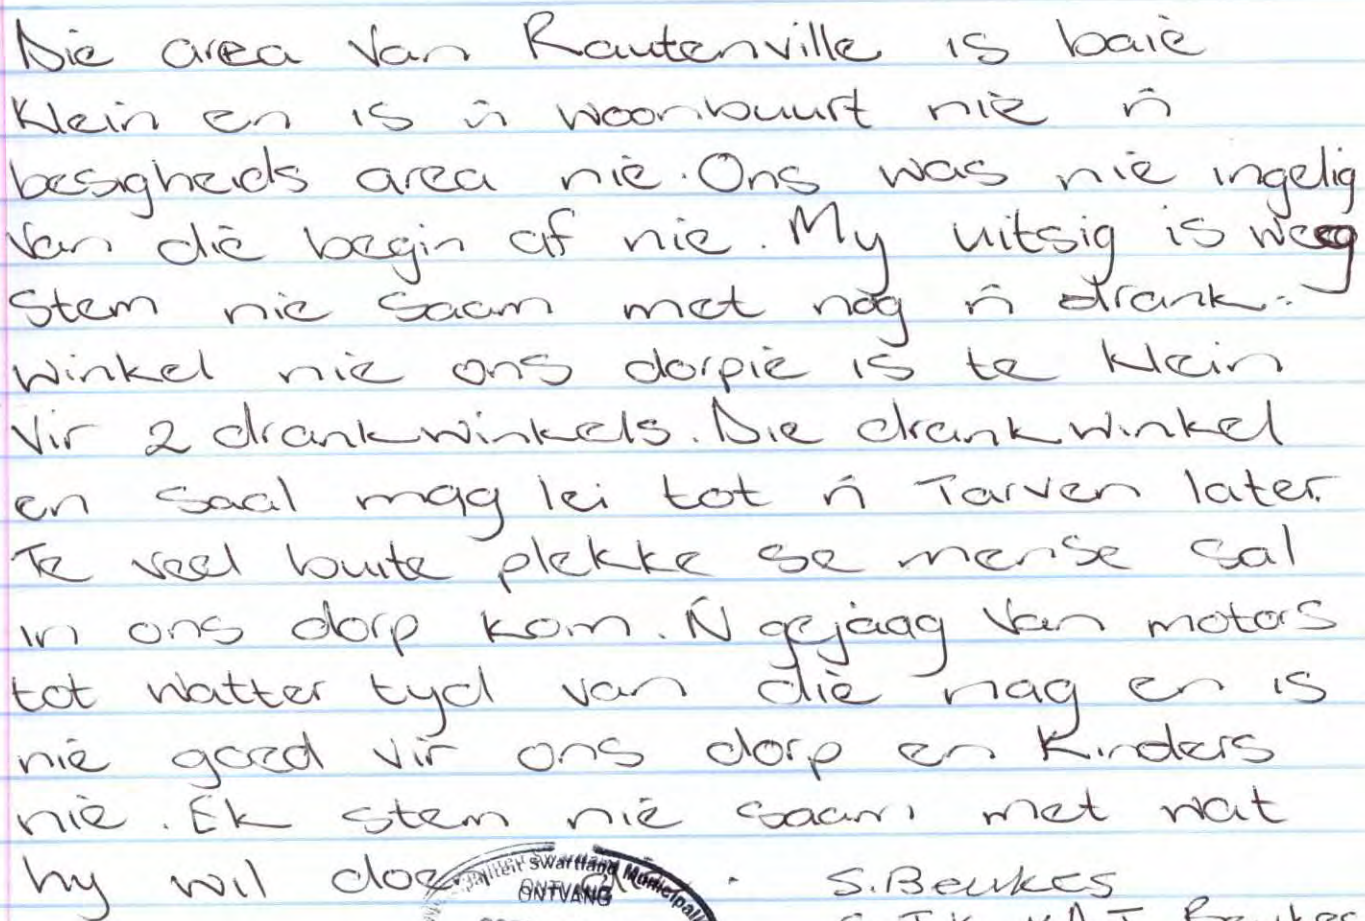 Die area van Rautenville is baie
klein en is 'n woonbuurt nie 'n
besigheids area nie. Ons was nie ingelig
van die begin af nie. My uitsig is weg
stem nie saam met nog 'n drank-
winkel nie ons dorpie is te klein
vir 2 drankwinkels. Die drankwinkel
en saal mag lei tot 'n Tarven later.
Te veel buite plekke se mense sal
in ons dorp kom. 'N gejaag van motors
tot watter tyd van die nag en is
nie goed vir ons dorp en kinders
nie. Ek stem nie saam met wat
hy wil doen nie. S. Beukes
Swartland Municipali
ONTVANG